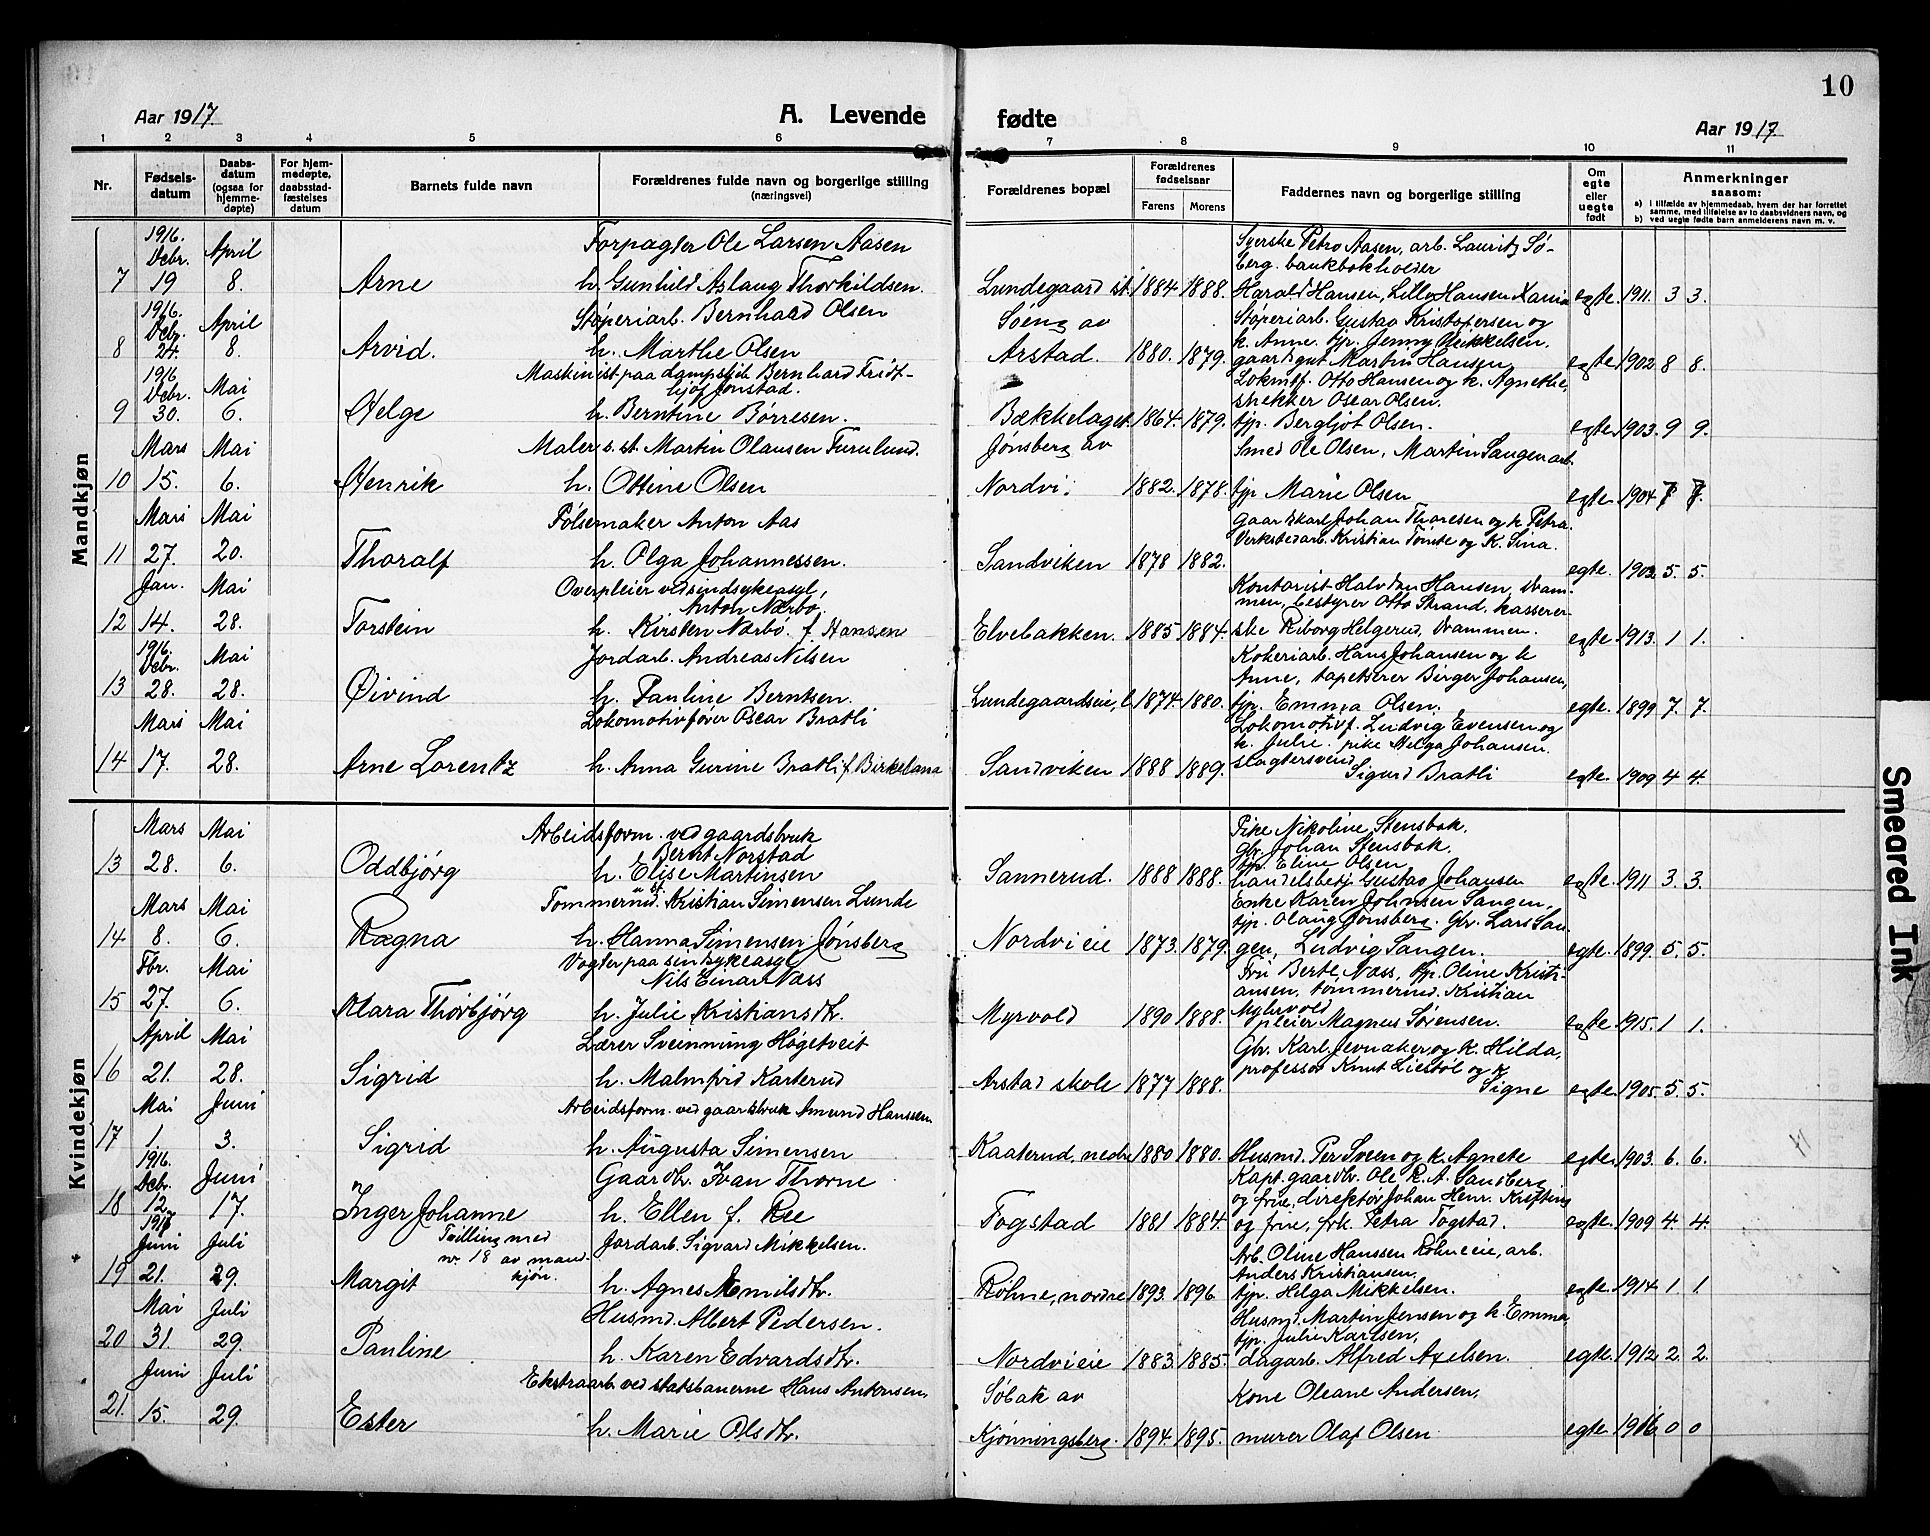 10
Aar 1917.
A. Levende
fødte
Aar 1917.
1 2 3 4 5 6 7 8 9 10 11
Nr.
Fødsels-
datum
Daabs-
datum
(ogsaa for
hjemme-
døpte)
For hjem-
medøpte,
daabsstad-
fæstelses
datum
Barnets fulde navn
Forældrenes fulde navn og borgerlige stilling
(næringsvei)
Forældrenes bopæl
Forældrenes
fødselsaar
Farens
Morens
Faddernes navn og borgerlige stilling
Om
egte
eller
uegte
født
Anmerkninger
saasom:
a) i tilfælde av hjemmedaab, hvem der har forrettet
samme, med tilføielse av to daabsvidners navn, og
b) ved uegte fødte barn anmelderens navn m. v.
Mandkjøn
1916. Decbr. April Forpagter Ole Larsen Aasen Syerske Petro Aasen, arb. Lauritz Sø-
berg. bankbokholder
7 19 8. Arne h. Gunhild Aslaug Thorkildsen. Lundegaard st. 1884 1888. Harald Hansen, Lilly Hansen egte. 1911. 3 3.
1916. Decbr. April Støperiarb. Bernhard Olsen Søeng av Støperiarb. Gustav Kristofersen og
h. Anne. tjp. Jenny Mikkelsen.
8 24. 8. Arvid. h. Marthe Olsen Arstad. 1880. 1879. gaardgut Martin Hansen egte. 1902 8 8.
1916 Decbr. Mai Maskinist paa dampskib Bernhard Fridt-
hjof Jonstad. Lokmtf. Otto Hansen og k. Agnethe,
snekker Oscar Olsen.
9 30. 6. Helge h. Berntine Borresen. Bækkelaget 1864. 1879. tjp. Bergljot Olsen. egte. 1903. 9 9.
Mars Mai Maler s. st. Martin Olausen Furulund. Jønsberg av Smed Ole Olsen, Martin Sangen arb.
10 15. 6. Henrik h. Ottine Olsen Nordvi. 1882. 1878. tjp Marie Olsen egte. 1904 7 7.
Mars Mai Pølsemaker Anton Aas Gaardskarl Johan Thoresen og k. Petra.
Verksbedarb. Kristian Tomte og K. Sina.
11 27. 20. Thoralf h. Olga Johannessen. Sandviken 1878 1882. egte. 1903. 5. 5.
Jan. Mai Overpleier ved sindsykeasyl, Anton Nærbo. Kontorist Halvdan Hansen, Dram-
men, bestyrer Otto Strand, kasserer-
12 14. 28. Torstein h. Kirsten Nærbø. f. Hansen Elvebakken. 1885 1884. ske Riborg Helgerud, Drammen. egte. 1913. 1 1.
1916. Decbr. Mai Jordarb. Andreas Nilsen Kokeriarb. Hans Johansen og k
Anne, tapetserer Birger Johansen,
13 28. 28. Øivind h. Pauline Berntsen. Lundegaardseie, 1874. 1880. tjp. Emma Olsen. egte. 1899 7. 7.
Mars Mai Lokomotivfører Oscar Bratli Lokomotivf. Ludvig Evensen og
k. Julie. pike Helga Johansen.
slagtersvend
14 17. 28. Arne Lorentz h. Anna Gurine Bratli f. Birkeland Sandviken 1888 1889. Sigurd Bratli egte. 1909 4 4.
Kvindekjøn
Mars Mai Arbeidsform. ved gaardsbruk
Bernt Norstad Pike Nikoline Stensbak.
Gbr. Johan Stensbak.
tjp. Eline Olsen
13 28. 6. Oddbjørg h. Elise Martinsen Sannerud. 1888 1888. handelsbetj. Gustav Johansen egte. 1911 3. 3.
Mars Mai Tømmermd. Kristian Simensen Lunde Enke Karen Johnsen Sangen,
tjp. Olaug Jønsberg. Gbr. Lars San-
14 8. 6. Ragna h. Hanna Simensen Jønsberg Nordvieie 1873. 1879. gen, Ludvig Sangen. egte. 1899. 5. 5.
Fbr. Mai Vogter paa sindsykeasyl
Nils Einar Næss Fru Berte Næss, tjp. Oline Kristi-
ansen, tømmermd. Kristian
Myhrvold
15 27. 6. Klara Thorbjørg h. Julie Kristiansdtr. Myrvold 1890 1888. pleier Magnus Sørensen. egte. 1915. 1 1.
April Mai Lærer Sveinnung Høgetveit Gbr. Karl Jevnaker og k. Hilda,
professor Knut Liestøl og k
16 21. 28. Sigrid h. Malmfrid Karterud Arstad skole 1877 1888. Signe egte. 1905. 5. 5.
Mai Juni Arbeidsform. ved gaardsbruk Amund Hanssen
17 1. 3. Sigrid h. Augusta Simensen Kaaterud, nedre 1880 1880. Husmd. Per Sveen og k. Agnete egte. 1903. 6. 6.
1916. Decbr. Juni Gaardbr. Ivan Thorne Kapt. gaardbr. Ole R. A. Sandberg
og frue, direktør Johan Henr. Kiftins
18 12. 17. Inger Johanne h. Ellen f. Ree Fogstad 1881 1884. og frue, frk. Petra Fogstad. egte. 1909 4. 4.
1917 Juni Juli Tvilling med
nr. 18 av mand-
kjøn. Jordarb. Sigvard Mikkelsen. Arb. Oline Hanssen Røhneeie, arb.
Anders Kristiansen.
19 21. 29. Margit h. Agnes Emilsdtr. Røhne, nordre 1893. 1896. tjp. Helga Mikkelsen. egte. 1914. 1 1.
Mai Juli Husmd. Albert Pedersen. Husmd. Martin Jensen og k. Emma
tjp. Julie Karlsen,
20 31. 29. Pauline h. Karen Edvardsdtr. Nordvieie 1883. 1885. dagarb. Alfred Axelsen. egte. 1912 2. 2.
Juni Juli Ekstraarb. ved statsbanerne Hans Antonsen. Søbak av Kone Oleane Andersen,
21. 15. 29. Ester h. Marie Olsdtr. Kjønningsberg. 1894. 1895. murer Olaf Olsen egte. 1916 0 0
Smeared Ink